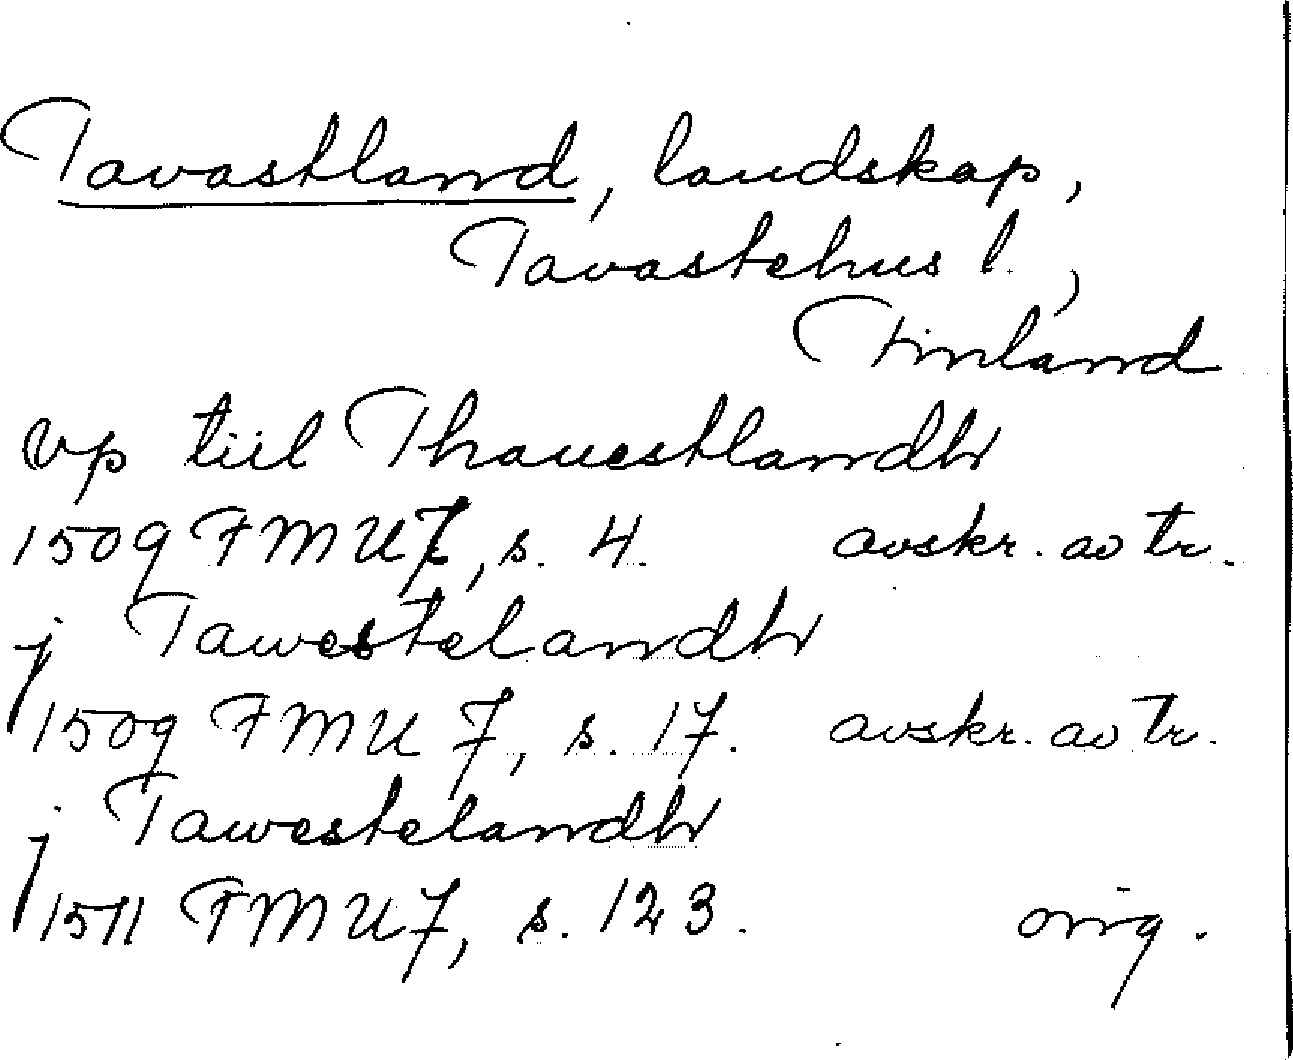 Tavastland, landskap,
Tavastehus l.,
Finland
vp tiil Thauestlandh
1509 FMU 7, s. 4. avskr. av tr.
j Tawestelandh
1509 FMU 7, s. 17. avskr. av tr.
j Tawestelandh
1511 FMU 7, s. 123. orig.